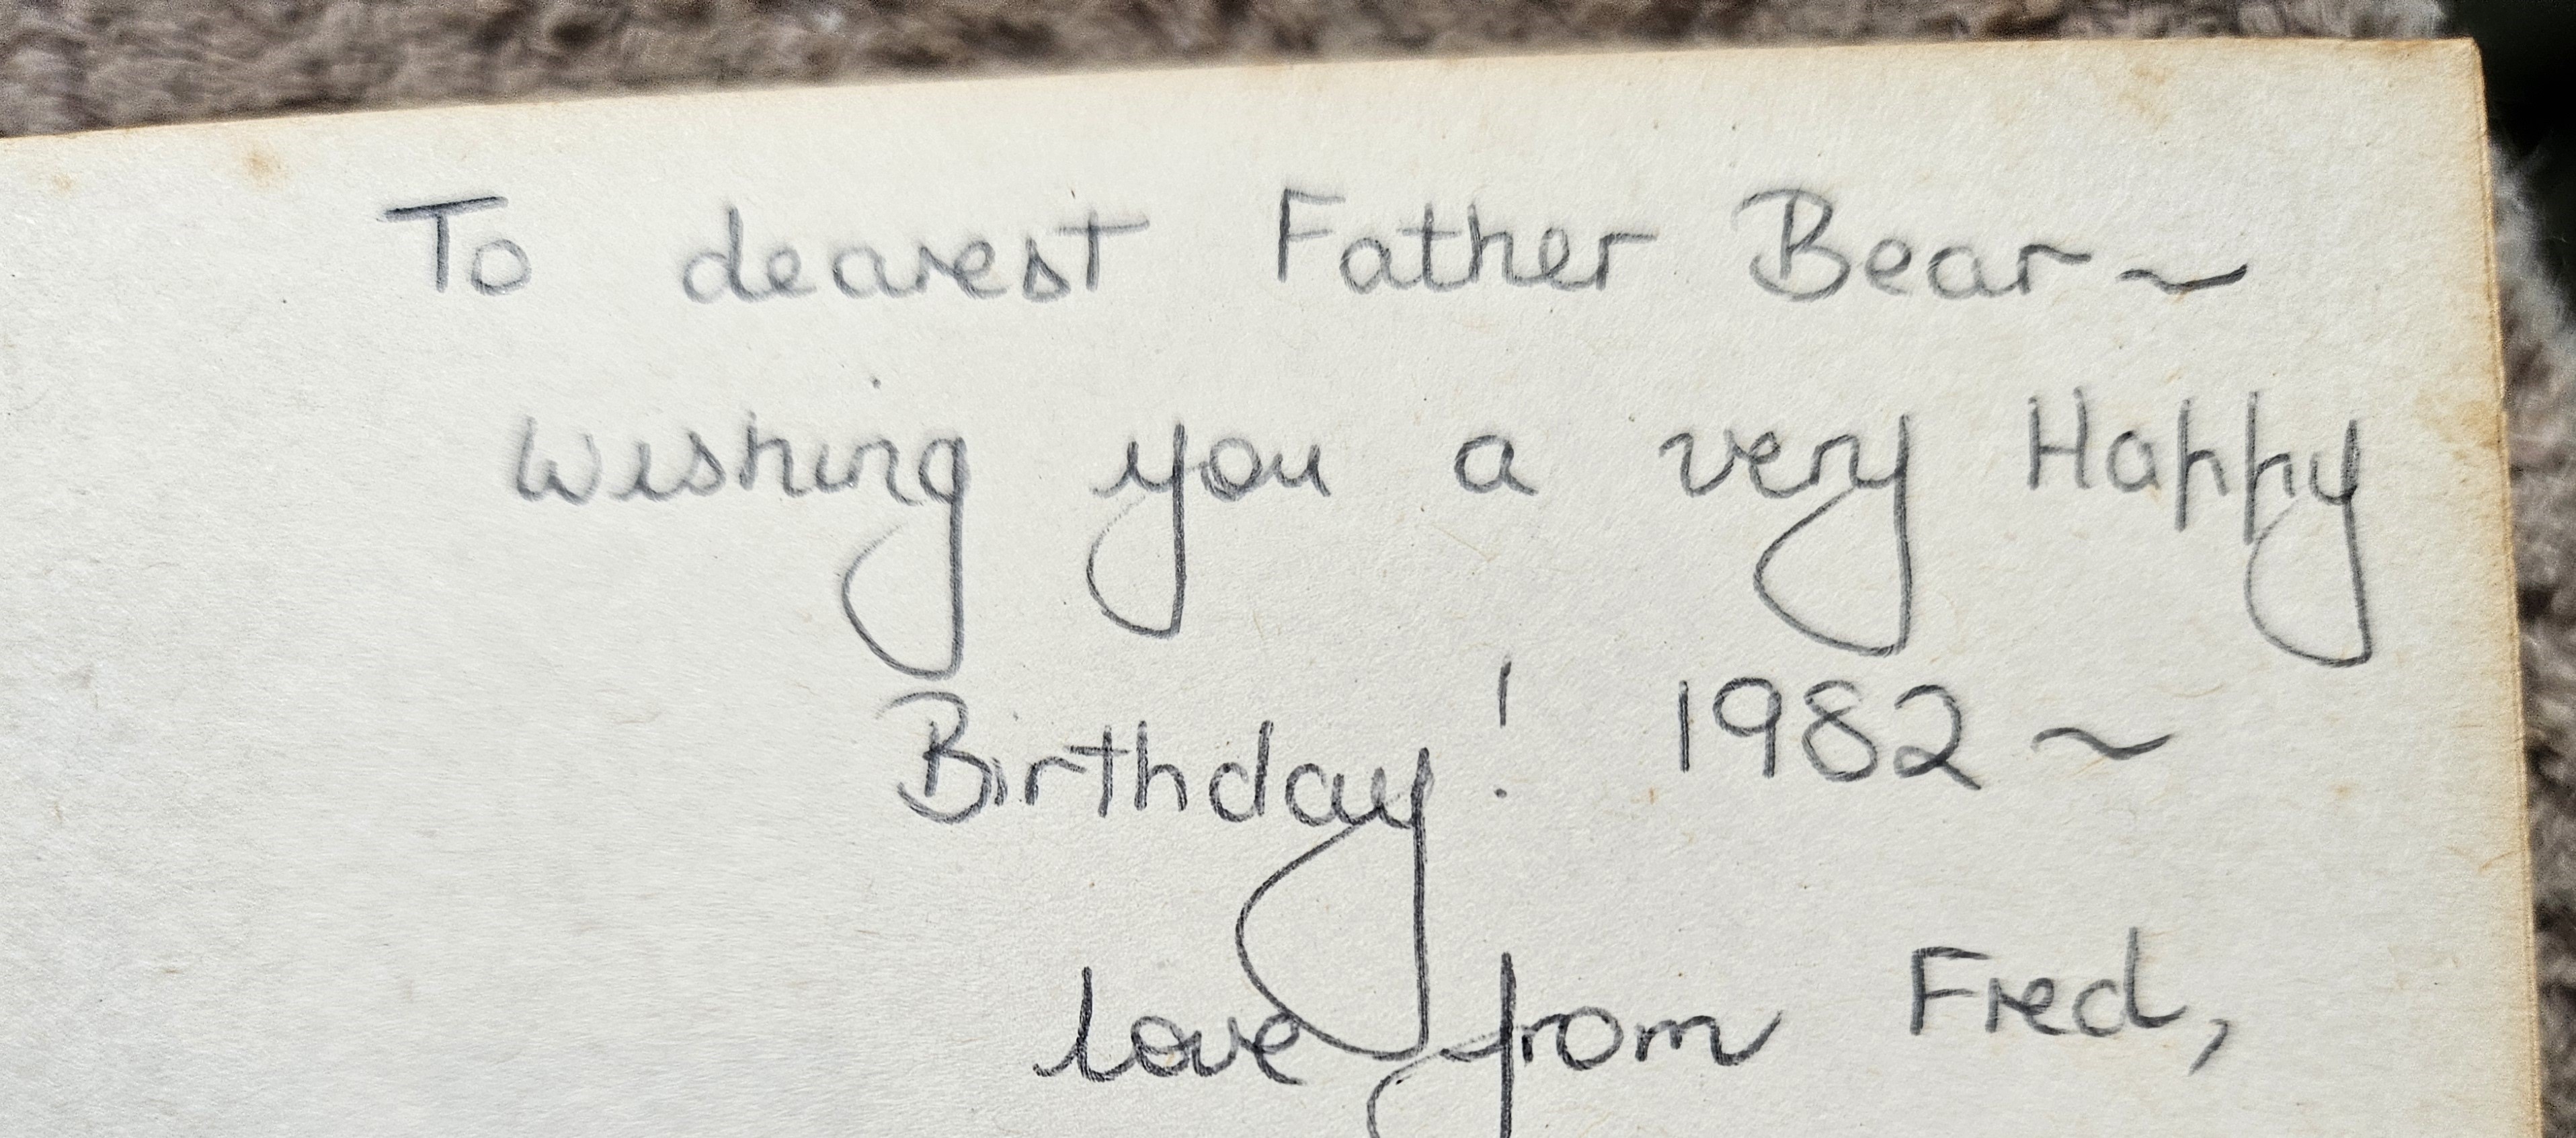 To dearest Father Bear~
Wishing you a very Happy
Birthday! 1982~
love from Fred,